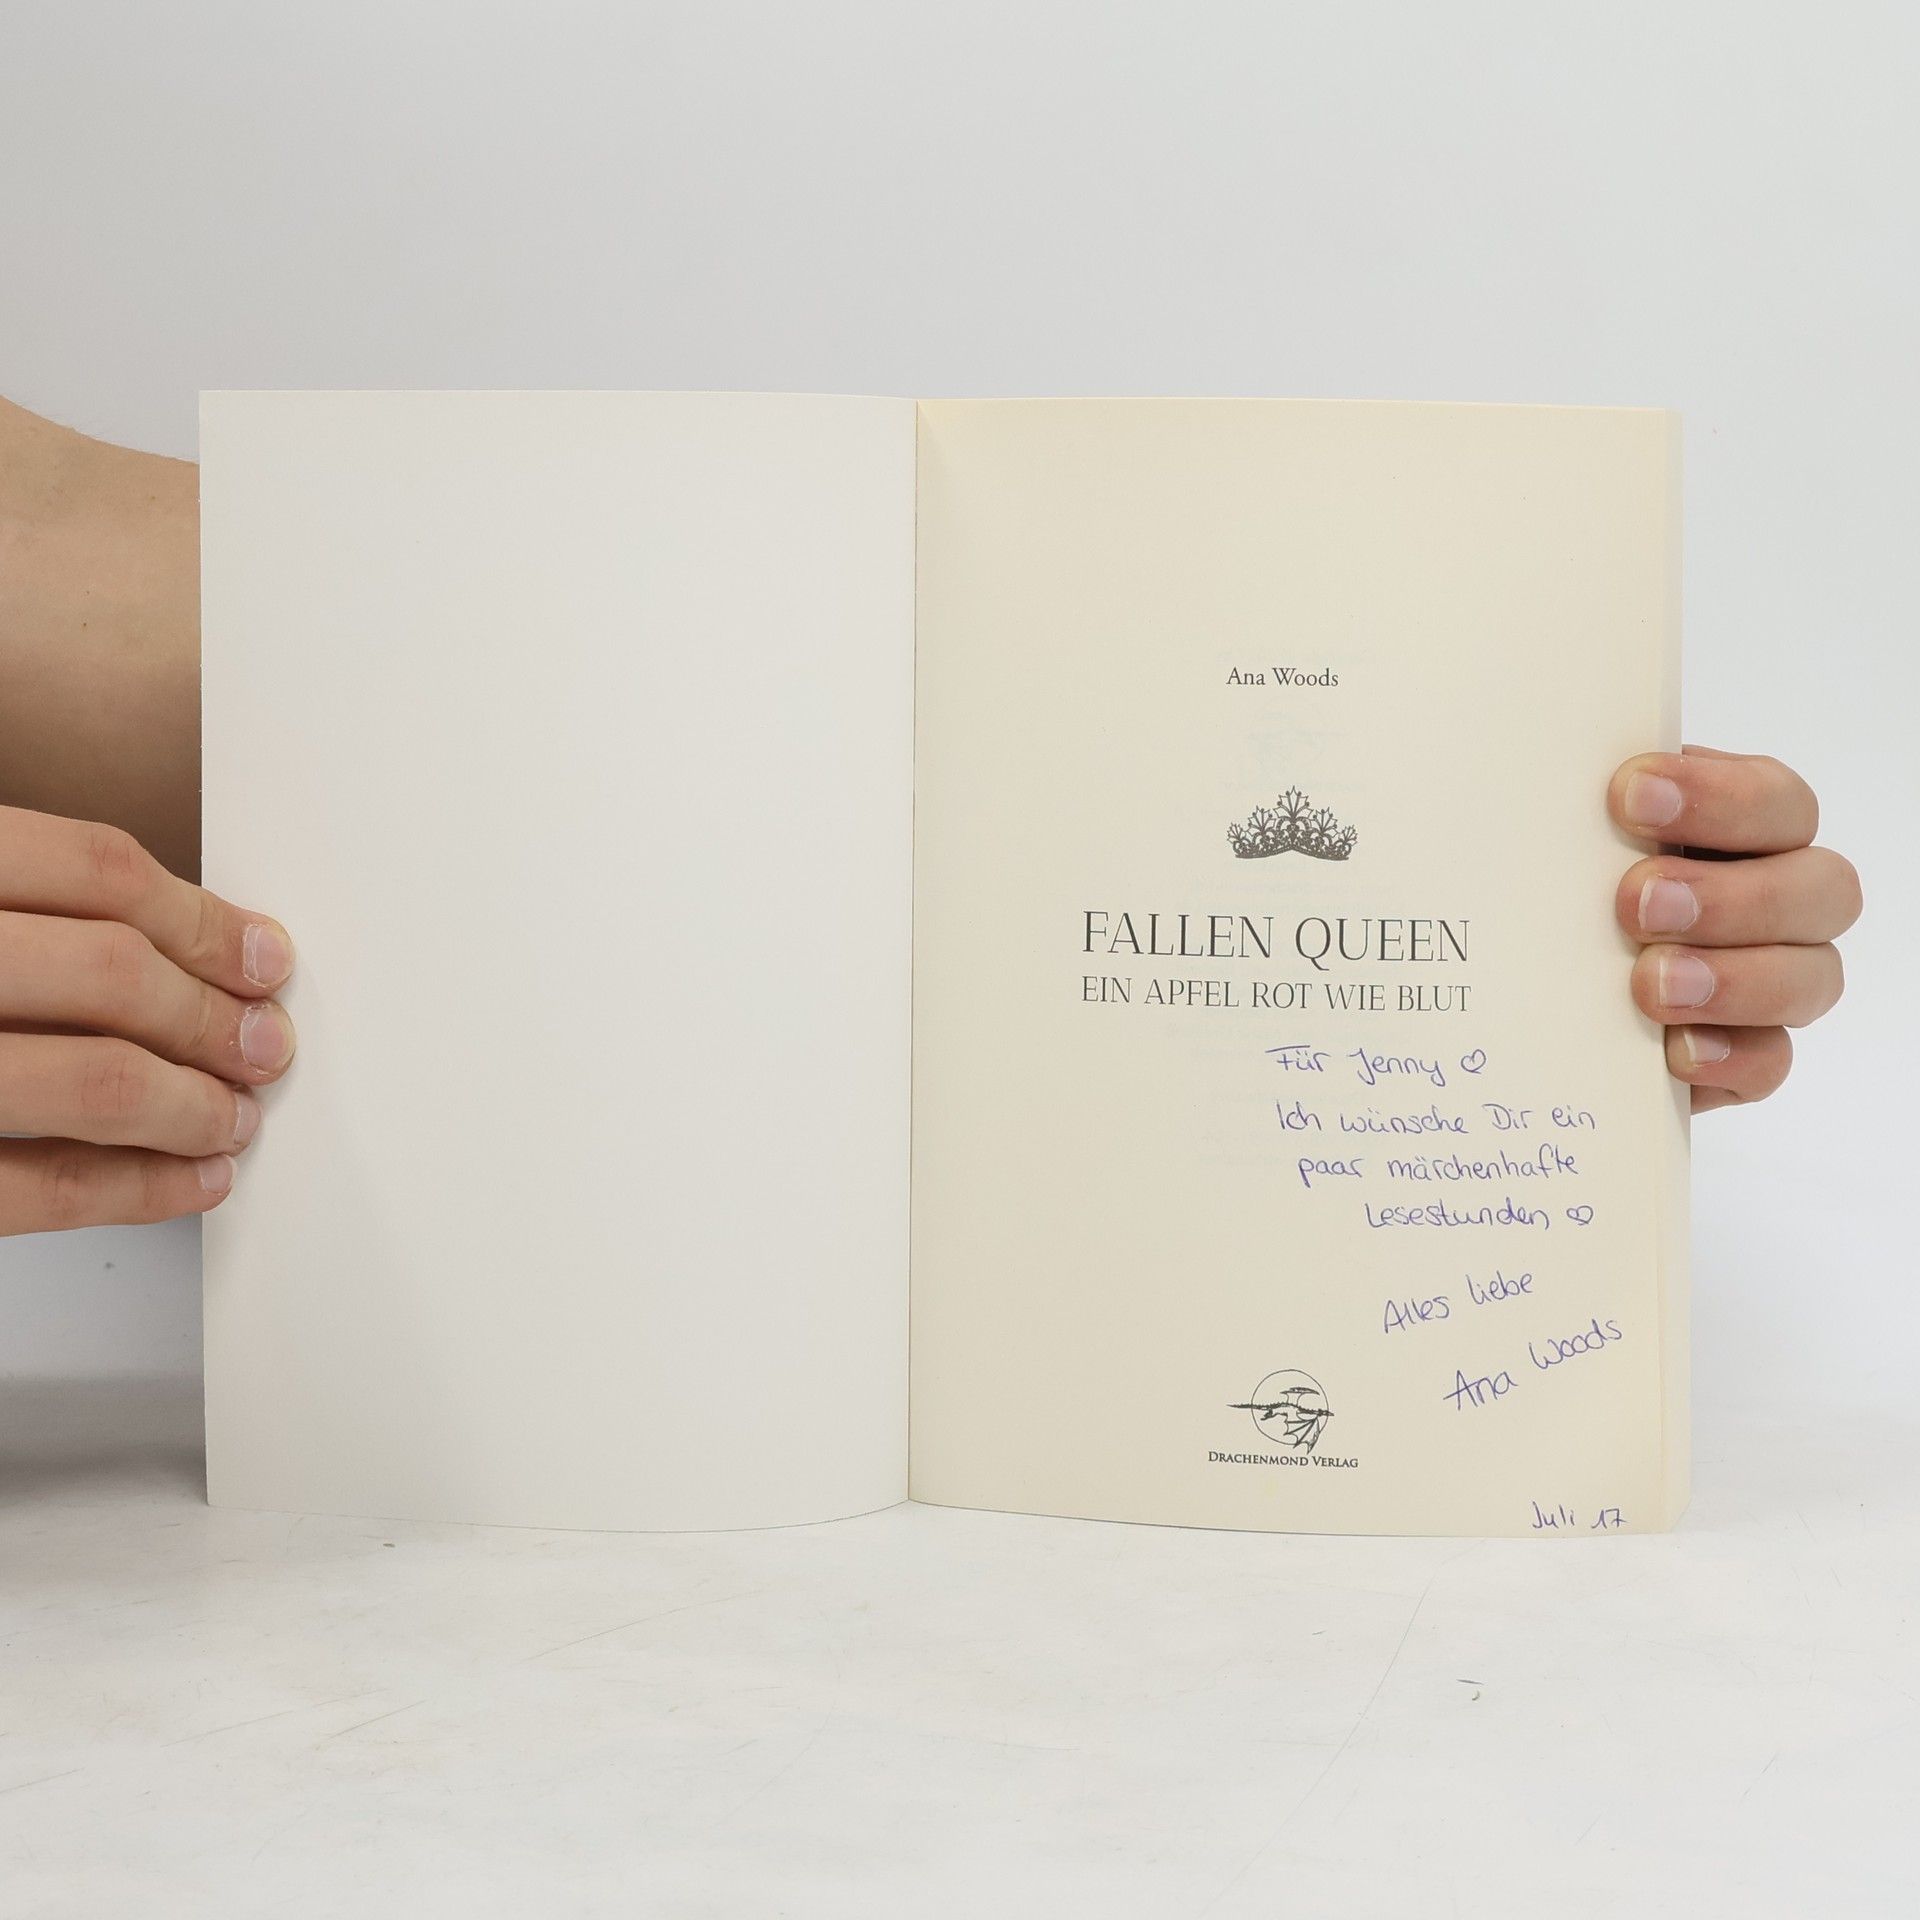 Ana Woods
FALLEN QUEEN
EIN APFEL ROT WIE BLUT
Für Jenny ♡
Ich wünsche Dir ein
paar märchenhafte
Lesestunden ♡
Alles liebe
Ana Woods
DRACHENMOND VERLAG
Juli 17